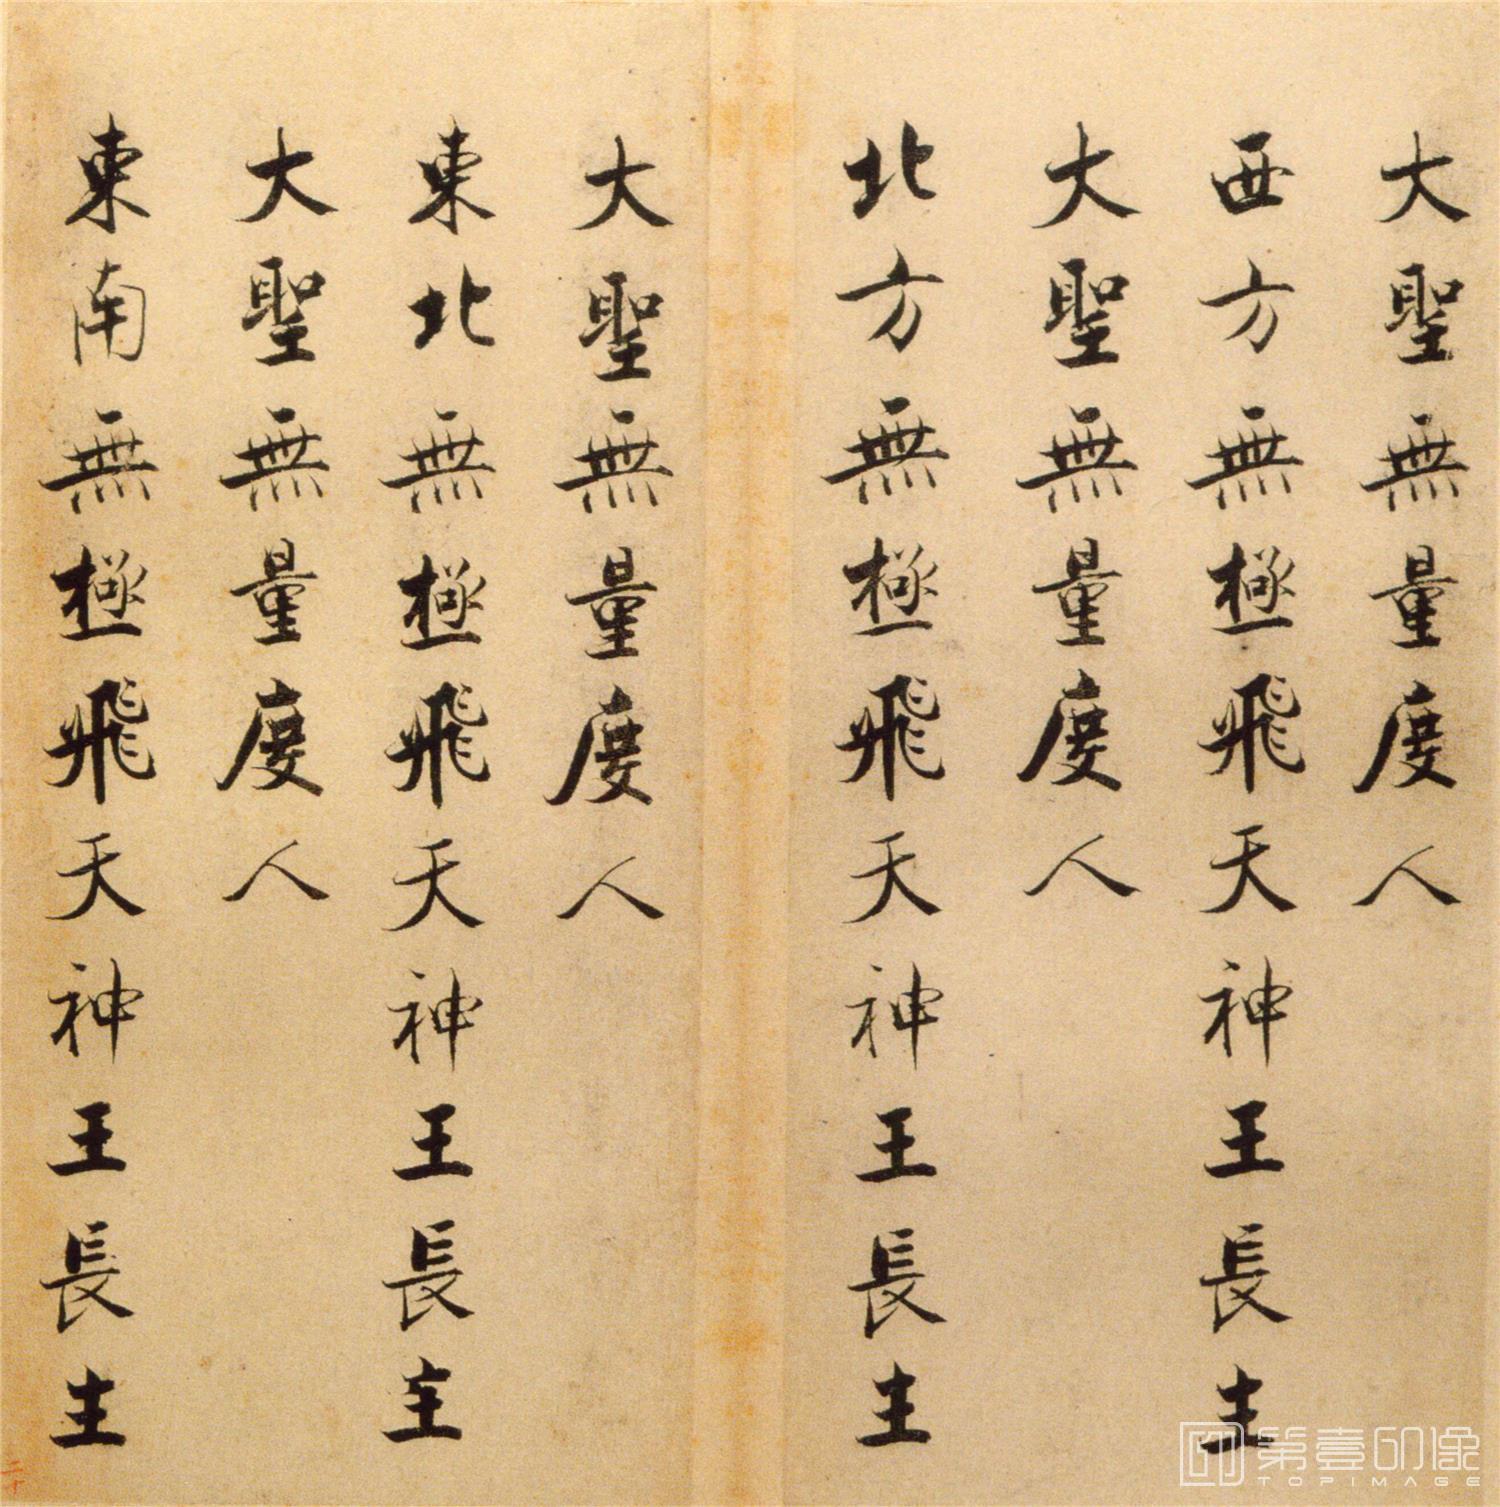 大聖無量度人
西方無極飛天神王長主
大聖無量度人
北方無極飛天神王長主
大聖無量度人
東北無極飛天神王長主
大聖無量度人
東南無極飛天神王長主
二十
第壹印像
TOPIMAGE